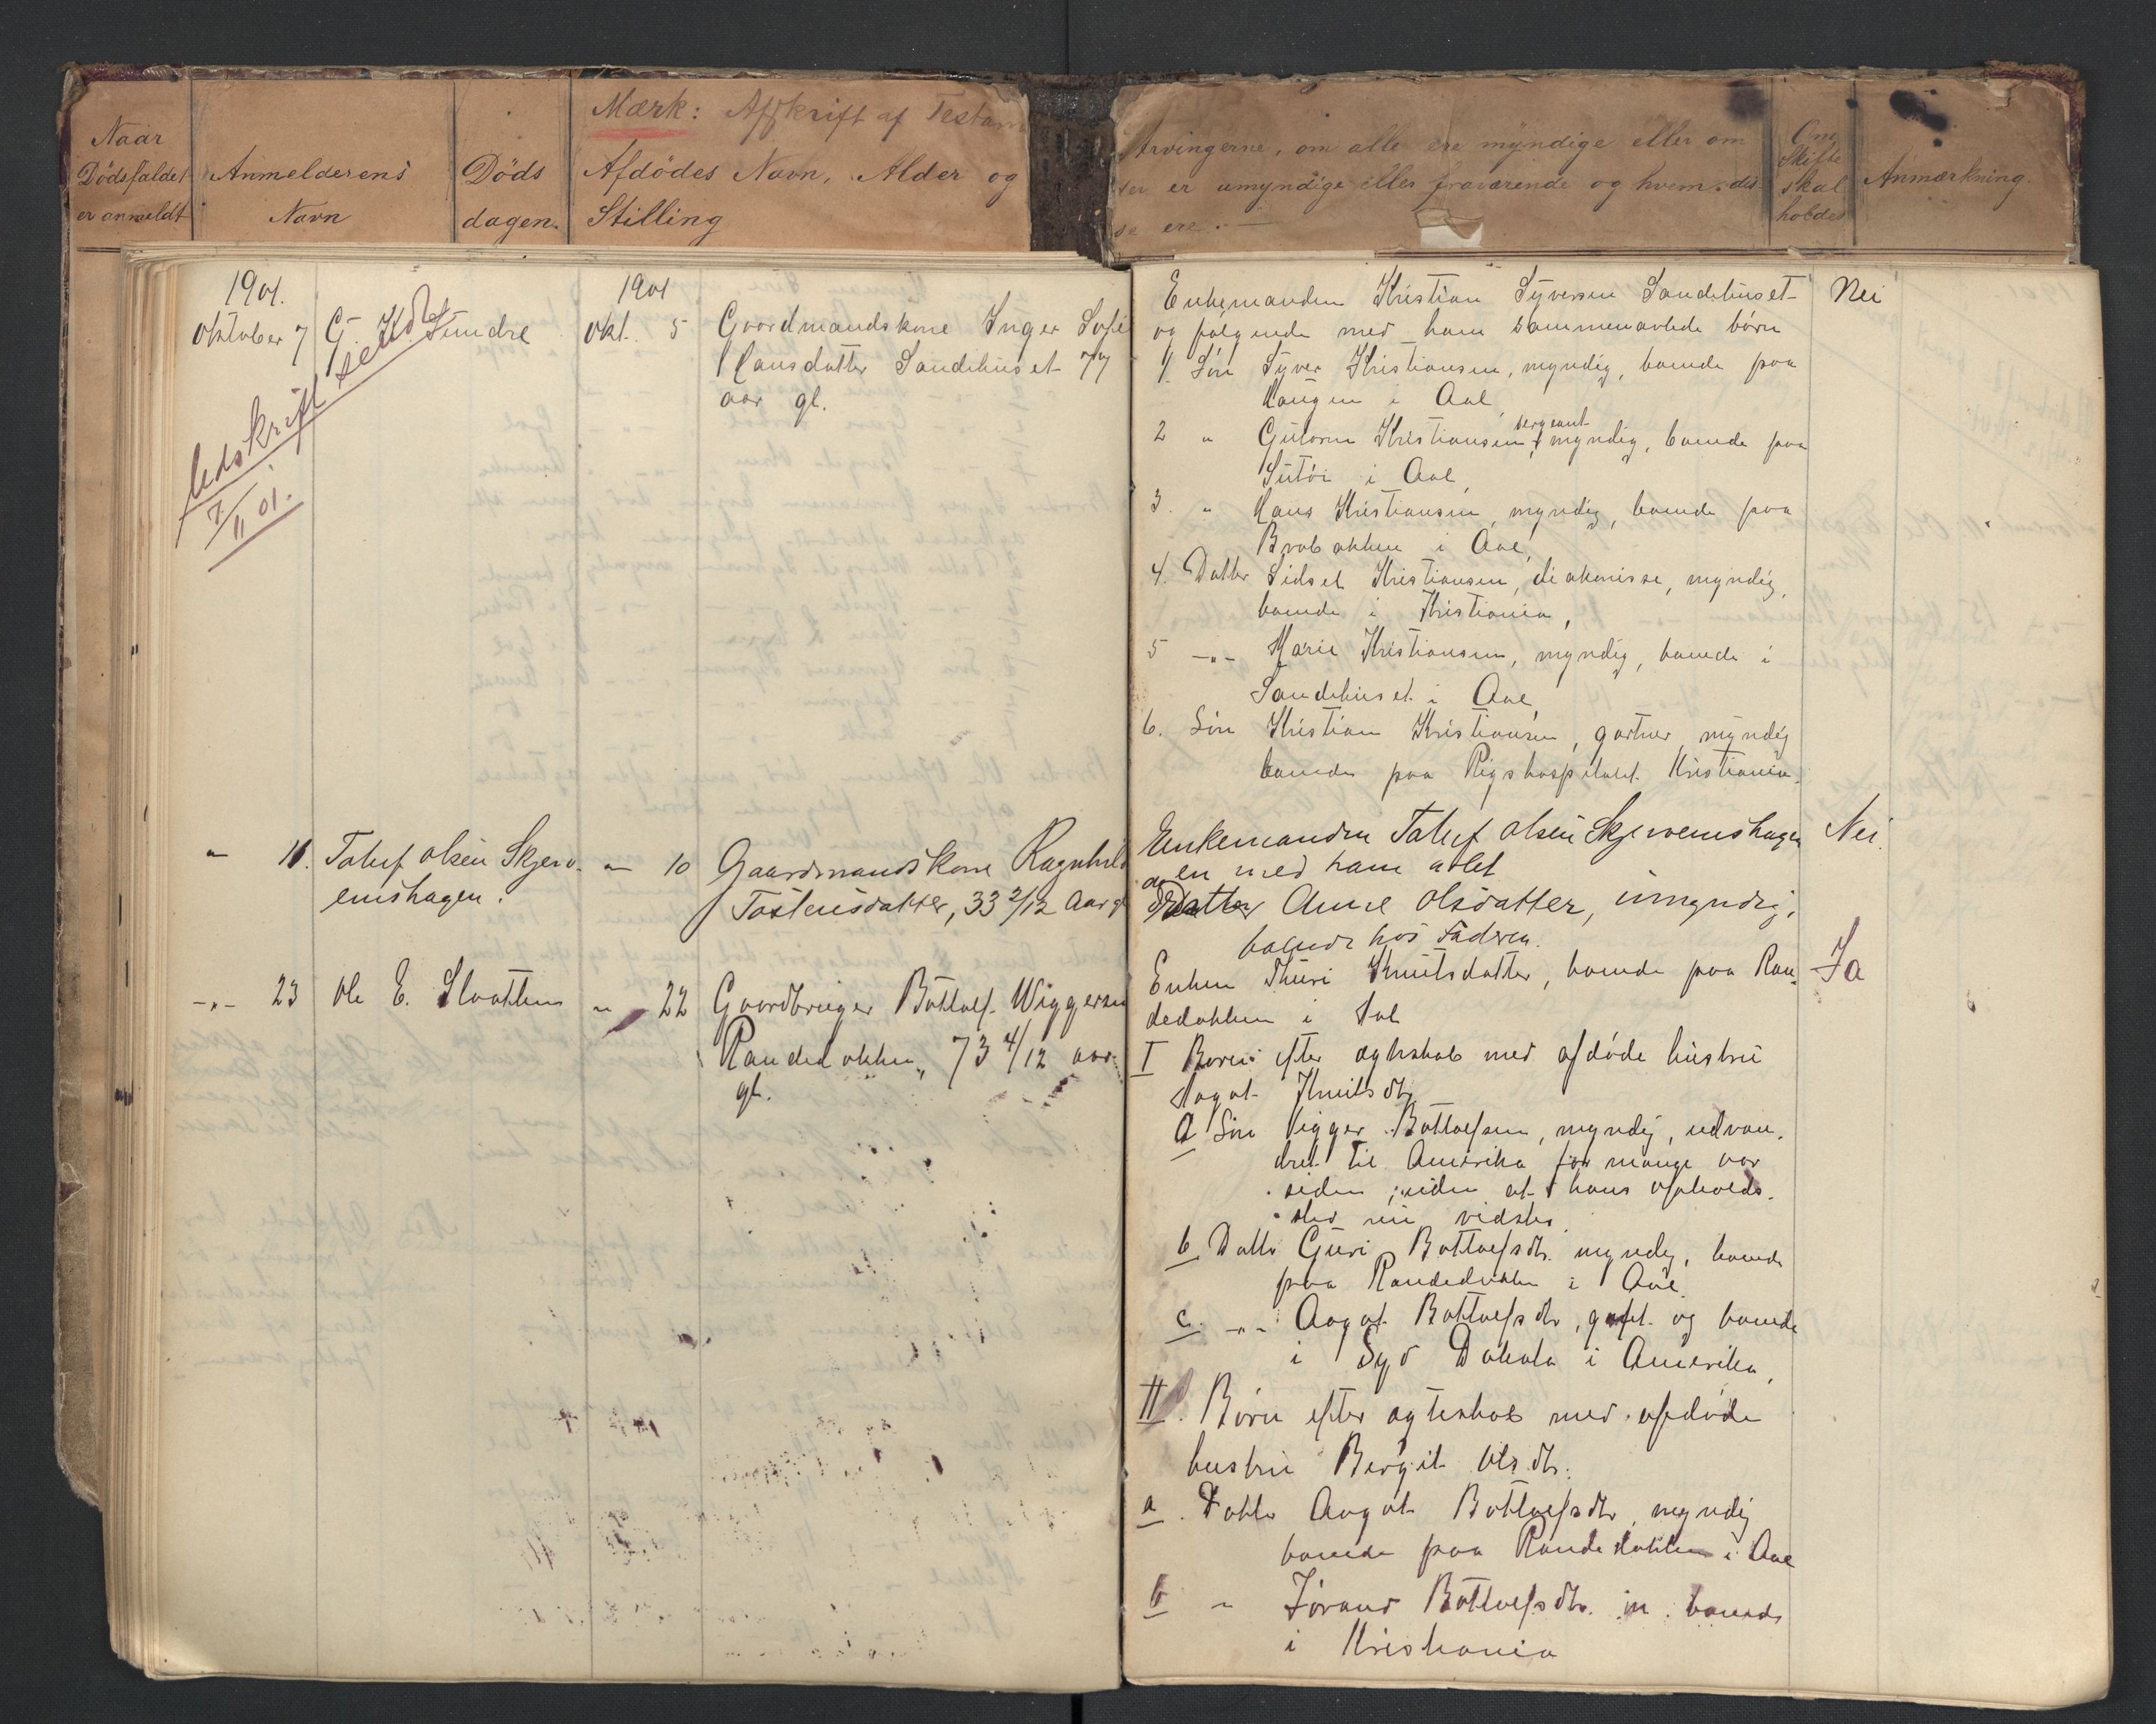 Mærk: Afskrift af Testam
Naar
Dödsfaldet
er anmeldt
Anmelderens
Navn
Döds
dagen.
Afdödes Navn, Alder og
Stilling
Arvingerne, om alle ere myndige eller om
der er umyndige eller fraværende og hvem dis-
se ere.
Om
Skifte
skal
holdes
Anmærkning.
1901.
Oktober 7 G. K. Sundre
Udskrift sendt
7/11 01.
1901
Okt. 5
Gaardmandskone Inger Sofie
Hansdatter Sandehuset 77
aar gl.
Enkemanden Kristian Syversen Sandehuset
og følgende med ham sammenavlede børn
1. Søn Syver Kristiansen, myndig, boende paa
Haugen i Aal,
2 " Guttorm Kristiansen, sergeant myndig, boende paa
Sutøi i Aal,
3. " Hans Kristiansen, myndig, boende paa
Brobakken i Aal,
4. Datter Sidsel Kristiansen, diakonisse, myndig,
boende i Kristiania,
5 -"- Marie Kristiansen, myndig, boende i
Sandehuset i Aal,
6. Søn Kristian Kristiansen, gartner, myndig
boende paa Rigshospitalet Kristiania.
Nei
" 11. Tolluf Olsen Skjerv-
emshagen.
" 10
Gaardmandskone Ragnhild
Tostensdatter, 33 2/12 Aar gl
Enkemanden Tolluf Olsen Skjervemshagen
og en med ham avlet
Datter Anne Olsdatter, umyndig,
boende hos Faderen.
Nei.
-"- 23 Ole E. Slaatten
" 22
Gaardbruger Bottolf Wiggersen
Randedokken, 73 4/12 aar
gl.
Enken Thuri Knutsdatter, boende paa Ran-
dedokken i Aal
I Børn efter ægteskab med afdøde hustru
Aagot Knutsdtr
a Søn Vigger Bottolfsen, myndig, udvan-
dret til Amerika for mange aar
siden, uden at hans opholds-
sted nu vides.
b Datter Guri Bottolfsdtr. myndig, boende
paa Randedokken i Aal.
c. -"- Aagot Bottolfsdtr, gift og boende
i Syd Dakota i Amerika,
II. Børn efter ægteskab med afdøde
hustru Bergit Olsdtr.
a. Datter Aagot Bottolfsdtr, myndig
boende paa Randedokken i Aal
b " Jørand Bottolfsdtr. m. boende
i Kristiania
Ja